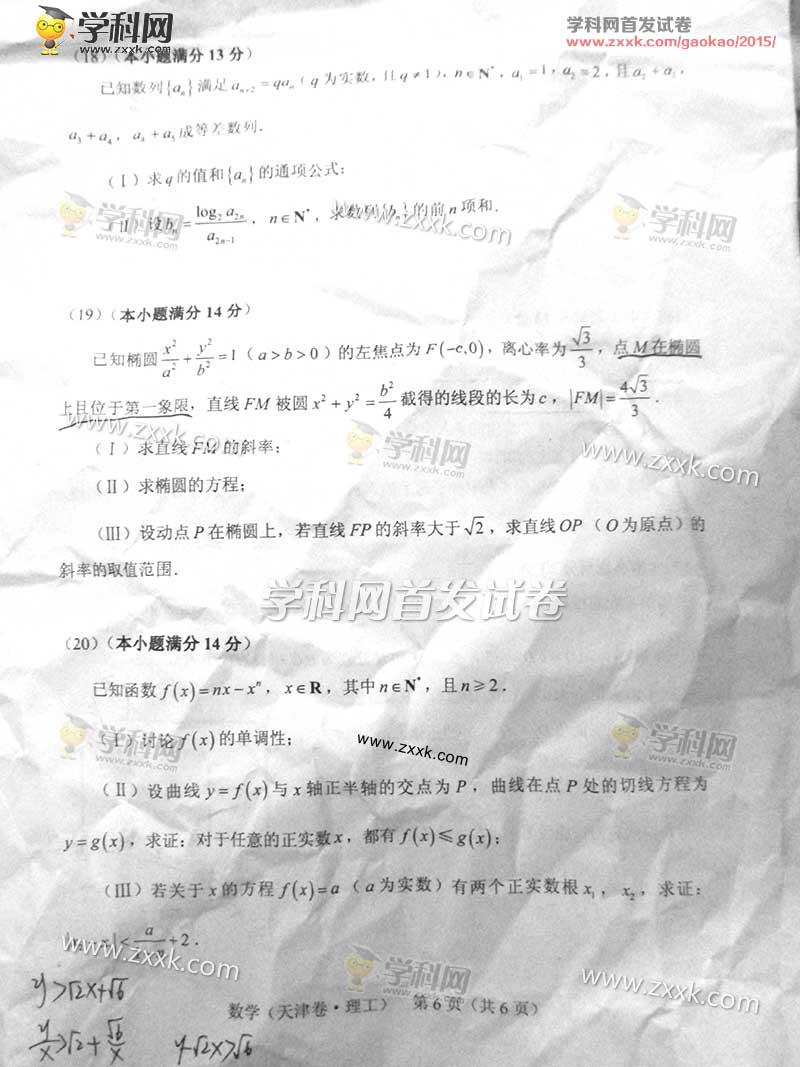 学科网
www.zxxk.com
学科网首发试卷
www.zxxk.com/gaokao/2015/
(18)(本小题满分 13 分)
已知数列{aₙ}满足 aₙ₊₂ = qaₙ(q 为实数,且 q ≠ 1),n∈N*,a₁ = 1,a₂ = 2,且 a₂ + a₃,
a₃ + a₄,a₄ + a₅ 成等差数列.
(Ⅰ)求 q 的值和{aₙ}的通项公式;
(Ⅱ)设 bₙ = log₂ a₂ₙ / a₂ₙ₋₁,n∈N*,求数列{bₙ}的前 n 项和.
学科网
www.zxxk.com
学科网
(19)(本小题满分 14 分)
已知椭圆 x²/a² + y²/b² = 1(a > b > 0)的左焦点为 F(−c,0),离心率为 √3/3,点 M 在椭圆
上且位于第一象限,直线 FM 被圆 x² + y² = b²/4 截得的线段的长为 c,|FM| = 4√3/3.
www.zxxk.com
学科网
www.zxxk.com
(Ⅰ)求直线 FM 的斜率;
(Ⅱ)求椭圆的方程;
(Ⅲ)设动点 P 在椭圆上,若直线 FP 的斜率大于 √2,求直线 OP(O 为原点)的
斜率的取值范围.
学科网首发试卷
(20)(本小题满分 14 分)
已知函数 f(x) = nx − xⁿ,x∈R,其中 n∈N*,且 n ≥ 2.
学科网
学科网
(Ⅰ)讨论 f(x) 的单调性;
www.zxxk.com
(Ⅱ)设曲线 y = f(x) 与 x 轴正半轴的交点为 P,曲线在点 P 处的切线方程为
y = g(x),求证:对于任意的正实数 x,都有 f(x) ≤ g(x);
(Ⅲ)若关于 x 的方程 f(x) = a(a 为实数)有两个正实数根 x₁,x₂,求证:
< a + 2.
www.zxxk.com
学科网
www.zxxk.com
y>√2x+√6
y/x>√2+√6/x
y-√2x>√6
数学(天津卷·理工) 第 6 页(共 6 页)